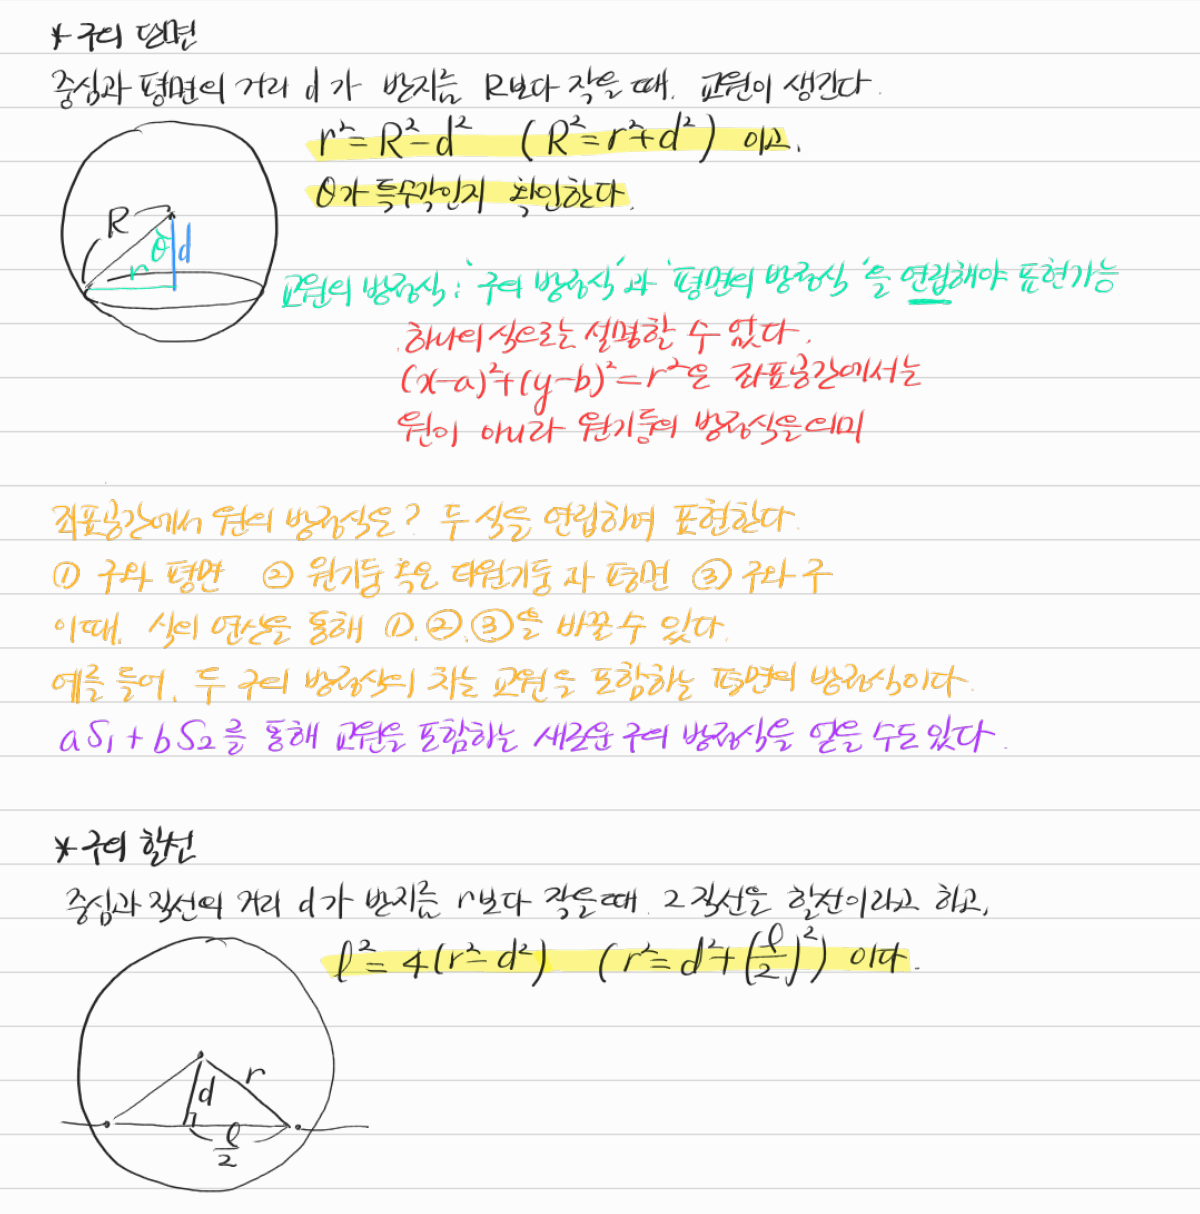 * 구의 단면
중심과 평면의 거리 d가 반지름 R보다 작을 때, 교원이 생긴다.
r² = R² - d² (R² = r² + d²) 이고,
θ가 특수각인지 확인한다.
R
θ
d
r
교원의 방정식 : '구의 방정식'과 '평면의 방정식'을 연립해야 표현가능
하나의 식으로는 설명할 수 없다.
(x-a)² + (y-b)² = r²은 좌표공간에서는
원이 아니라 원기둥의 방정식을 의미
좌표공간에서 원의 방정식은? 두 식을 연립하여 표현한다.
① 구와 평면 ② 원기둥 혹은 타원기둥과 평면 ③ 구와 구
이때, 식의 연산을 통해 ①, ②, ③을 바꿀 수 있다.
예를 들어, 두 구의 방정식의 차는 교원을 포함하는 평면의 방정식이다.
aS₁ + bS₂를 통해 교원을 포함하는 새로운 구의 방정식을 얻을 수도 있다.
* 구의 할선
중심과 직선의 거리 d가 반지름 r보다 작을때 그 직선을 할선이라고 하고,
ℓ² = 4(r² - d²) (r² = d² + (ℓ/2)²) 이다.
r
d
ℓ/2